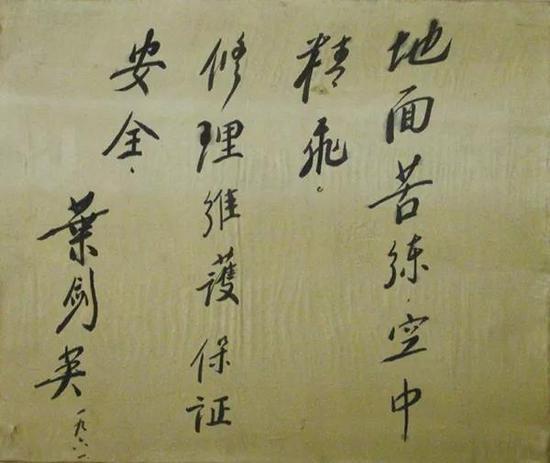 地面苦练·空中
精飛。
修理维護保证
安全·
葉剑英
一九六一